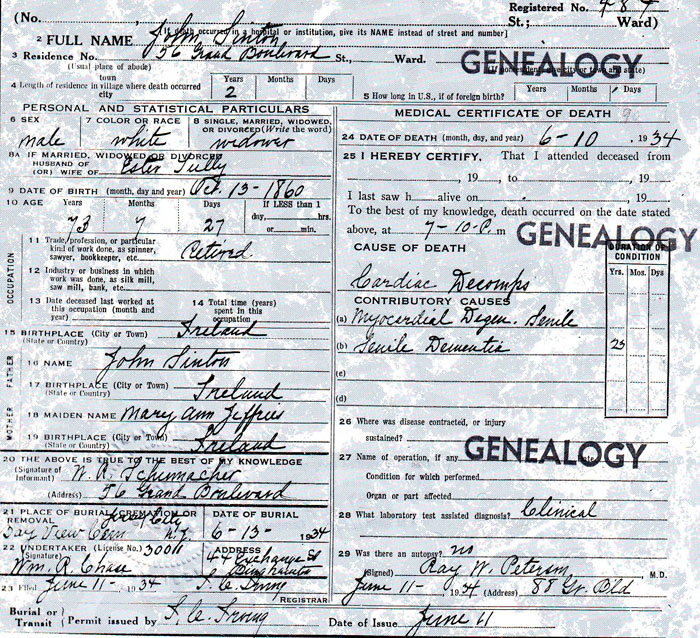 Registered No. 484
(No. St.; Ward)
[If death occurred in a hospital or institution, give its NAME instead of street and number]
2 FULL NAME John Sinton
3 Residence No. 56 Grand Boulevard St., Ward.
(Usual place of abode)
GENEALOGY
4 Length of residence in town village city where death occurred Years 2 Months Days
5 How long in U.S., if of foreign birth? Years Months Days
PERSONAL AND STATISTICAL PARTICULARS
6 SEX male
7 COLOR OR RACE white
8 SINGLE, MARRIED, WIDOWED, OR DIVORCED (Write the word) widower
8A IF MARRIED, WIDOWED OR DIVORCED
HUSBAND OF (OR) WIFE OF Ester Tully
9 DATE OF BIRTH (month, day and year) Oct. 13-1860
10 AGE Years 73 Months 7 Days 27 If LESS than 1 day, hrs. or min.
OCCUPATION
11 Trade, profession, or particular kind of work done, as spinner, sawyer, bookkeeper, etc. Retired
12 Industry or business in which work was done, as silk mill, saw mill, bank, etc.
13 Date deceased last worked at this occupation (month and year)
14 Total time (years) spent in this occupation
15 BIRTHPLACE (City or Town) Ireland
(State or Country)
FATHER
16 NAME John Sinton
17 BIRTHPLACE (City or Town) Ireland
(State or Country)
MOTHER
18 MAIDEN NAME Mary Ann Jeffries
19 BIRTHPLACE (City or Town) Ireland
(State or Country)
20 THE ABOVE IS TRUE TO THE BEST OF MY KNOWLEDGE
(Signature of Informant) W. R. Schumacher
(Address) 56 Grand Boulevard
21 PLACE OF BURIAL, CREMATION OR REMOVAL Jersey City
Bay View Cem N.J.
DATE OF BURIAL
6-13- 1934
22 UNDERTAKER (License No.) 30011
(Signature) Wm. R. Chase
ADDRESS
44 Exchange St
Binghamton
23 Filed June 11- 1934
REGISTRAR
Burial or Transit Permit issued by
Date of Issue June 11
MEDICAL CERTIFICATE OF DEATH
24 DATE OF DEATH (month, day, and year) 6-10, 1934
25 I HEREBY CERTIFY, That I attended deceased from
, 19 , to , 19
I last saw h alive on , 19
To the best of my knowledge, death occurred on the date stated
above, at 7-10-P.m
GENEALOGY
CAUSE OF DEATH
DURATION OF CONDITION
Yrs. Mos. Dys
Cardiac Decomps
CONTRIBUTORY CAUSES
(a) Myocardial Degen. Senile
(b) Senile Dementia 23
(c)
(d)
26 Where was disease contracted, or injury sustained?
GENEALOGY
27 Name of operation, if any date
Condition for which performed
Organ or part affected
28 What laboratory test assisted diagnosis? Clinical
29 Was there an autopsy? no
(Signed) Ray W. Peterson M.D.
June 11- 1934 (Address) 88 Gr. Bld